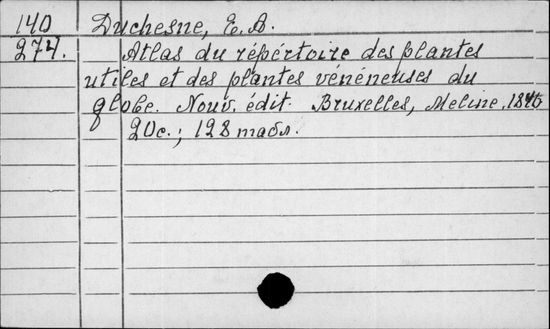 140 Duchesne, E. A.
274. Atlas du répértoire des plantes
utiles et des plantes vénéneuses du
globe. Nouv. édit. Bruxelles, Meline, 1846
20c.; 128 табл.